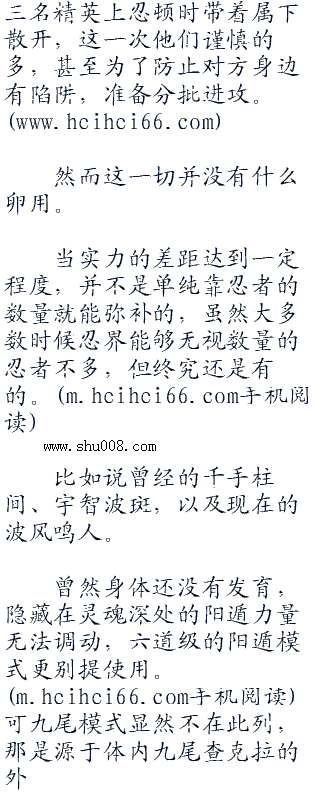 三名精英上忍顿时带着属下
散开，这一次他们谨慎的
多，甚至为了防止对方身边
有陷阱，准备分批进攻。
(www.hcihci66.com)
然而这一切并没有什么
卵用。
当实力的差距达到一定
程度，并不是单纯靠忍者的
数量就能弥补的，虽然大多
数时候忍界能够无视数量的
忍者不多，但终究还是有
的。(m.hcihci66.com手机阅
读)
www.shu008.com
比如说曾经的千手柱
间、宇智波斑，以及现在的
波风鸣人。
曾然身体还没有发育，
隐藏在灵魂深处的阳遁力量
无法调动，六道级的阳遁模
式更别提使用。
(m.hcihci66.com手机阅读)
可九尾模式显然不在此列，
那是源于体内九尾查克拉的
外